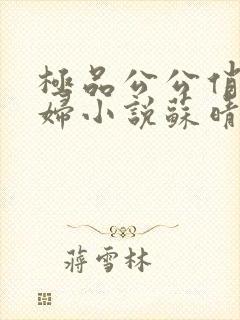 極品公公俏
婦小說蘇晴
蔣雪林